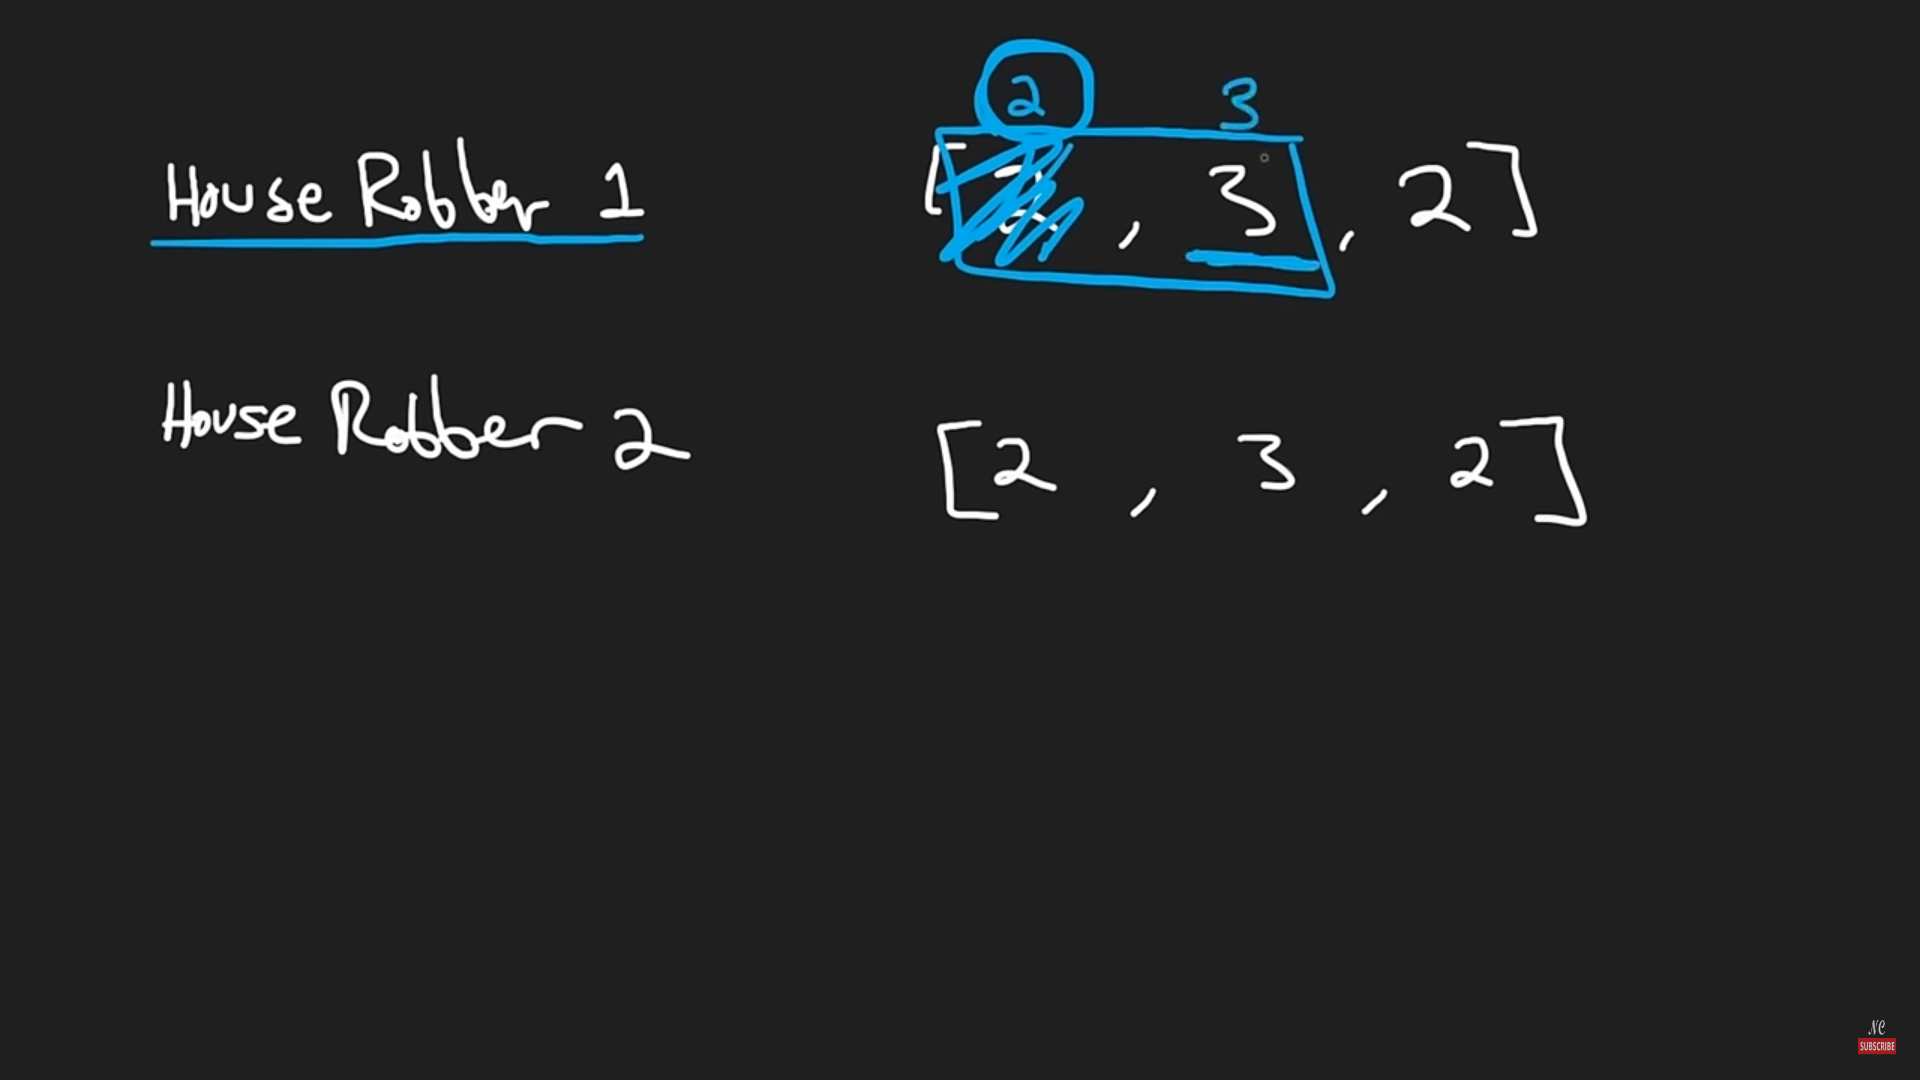 2 3
House Robber 1 [2, 3, 2]
House Robber 2 [2, 3, 2]
NC
SUBSCRIBE